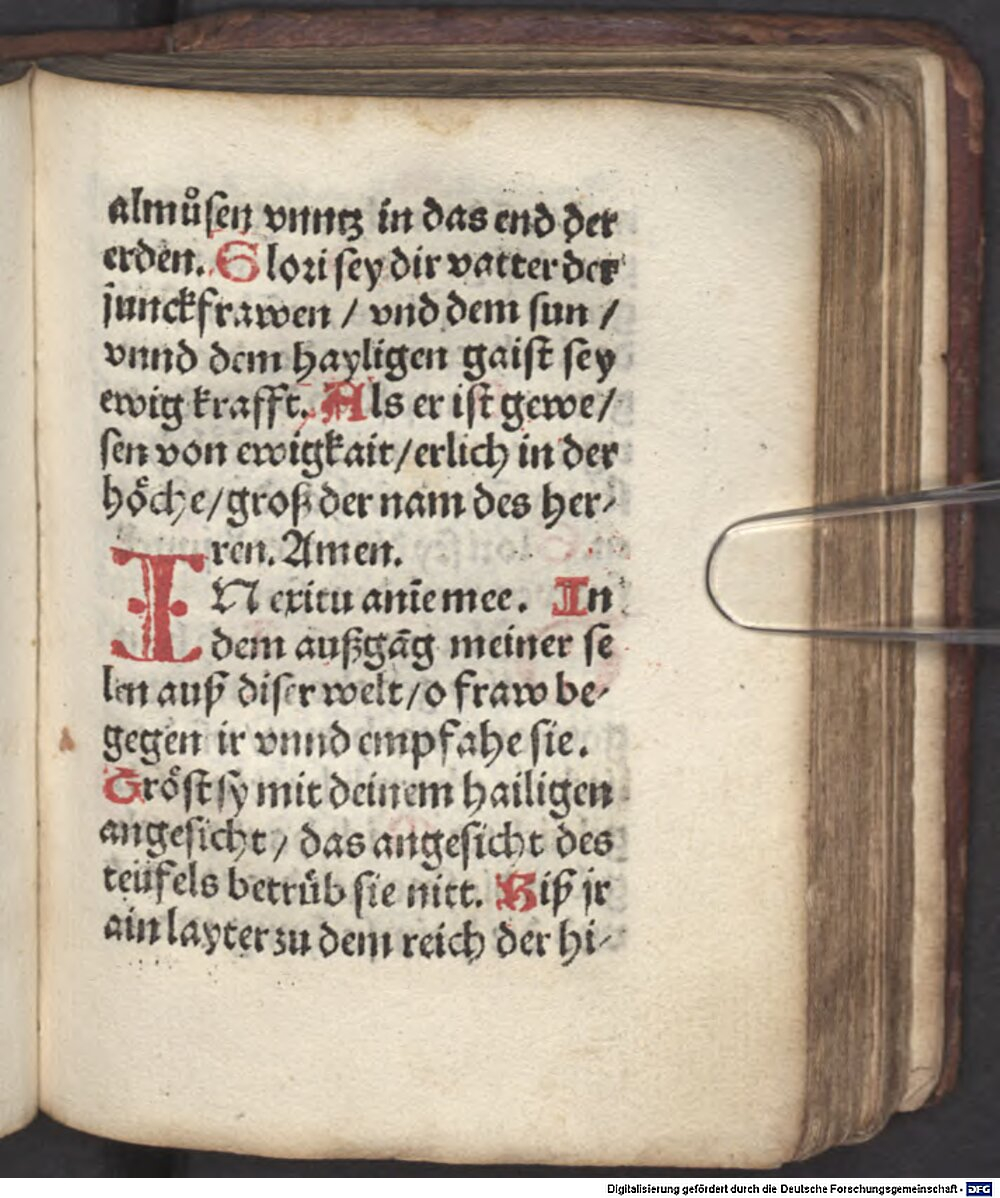 almůſen vnntz in das end der
erden. Glori ſey dir vatter der
junckfrawen / vnd dem ſun /
vnnd dem hayligen gaiſt ſey
ewig krafft. Als er iſt gewe/
ſen von ewigkait/erlich in der
hoͤche/groß der nam des her-
ren. Amen.
IN exitu anīe mee. In
dem außgāg meiner ſe
len auß diſer welt/o fraw be-
gegen ir vnnd empfahe ſie.
Troͤſt ſy mit deinem hailigen
angeſicht / das angeſicht des
teüfels betruͤb ſie nitt. Biß jr
ain layter zu dem reich der hi-
Digitalisierung gefördert durch die Deutsche Forschungsgemeinschaft - DFG